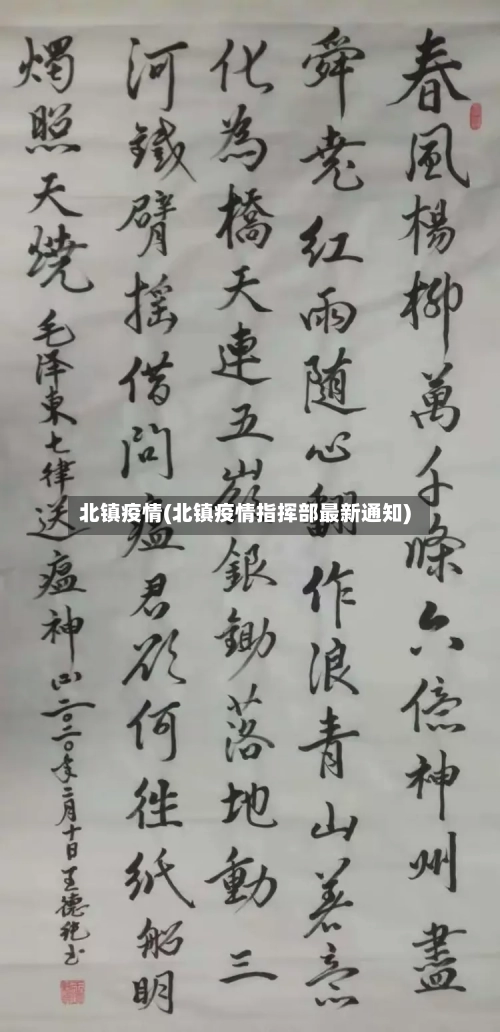 春風楊柳萬千條六億神州盡
舜堯紅雨随心翻作浪青山著意
化為橋天連五嶺銀鋤落地動三
河鐵臂摇借問瘟君欲何往紙船明
燭照天燒
毛泽東七律送瘟神二〇二〇年二月十日王德书
北镇疫情(北镇疫情指挥部最新通知)